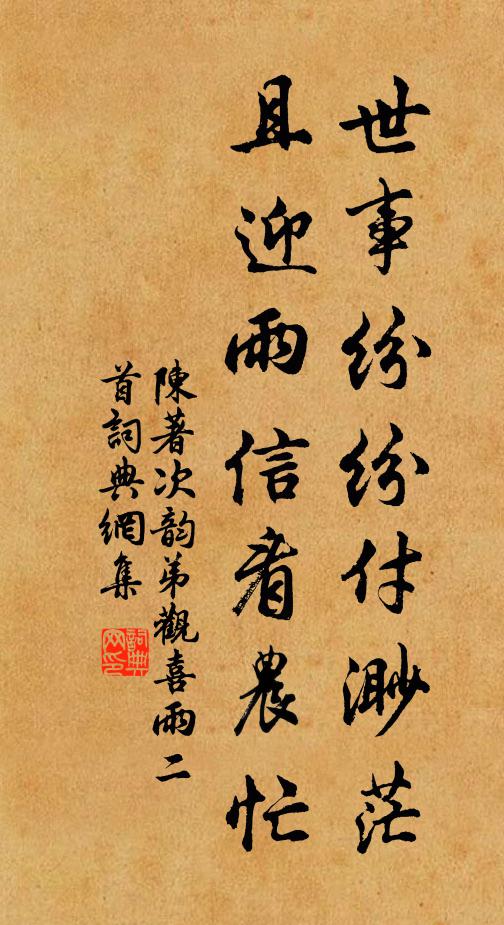 世事紛紛付渺茫
且迎雨信看農忙
陳著次韵弟觀喜雨二
首詞典網集
詞典网印